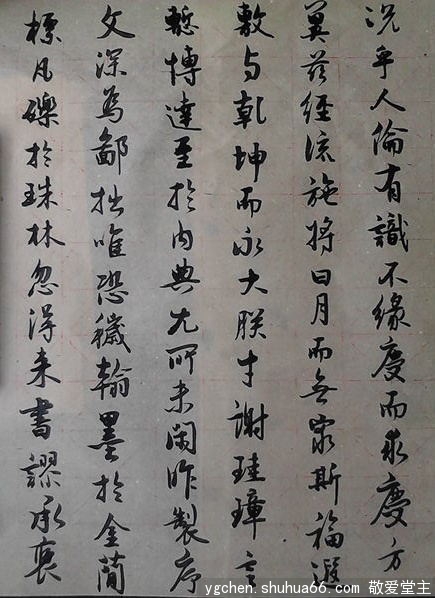 況乎人倫有識不緣慶而求慶方
冀茲經流施將日月而無窮斯福遐
敷与乾坤而永大朕才謝珪璋言
慙博達至於內典尤所未閑昨製序
文深為鄙拙唯恐穢翰墨於金簡
標瓦礫於珠林忽得来書謬承褒
ygchen.shuhua66.com 敬爱堂主